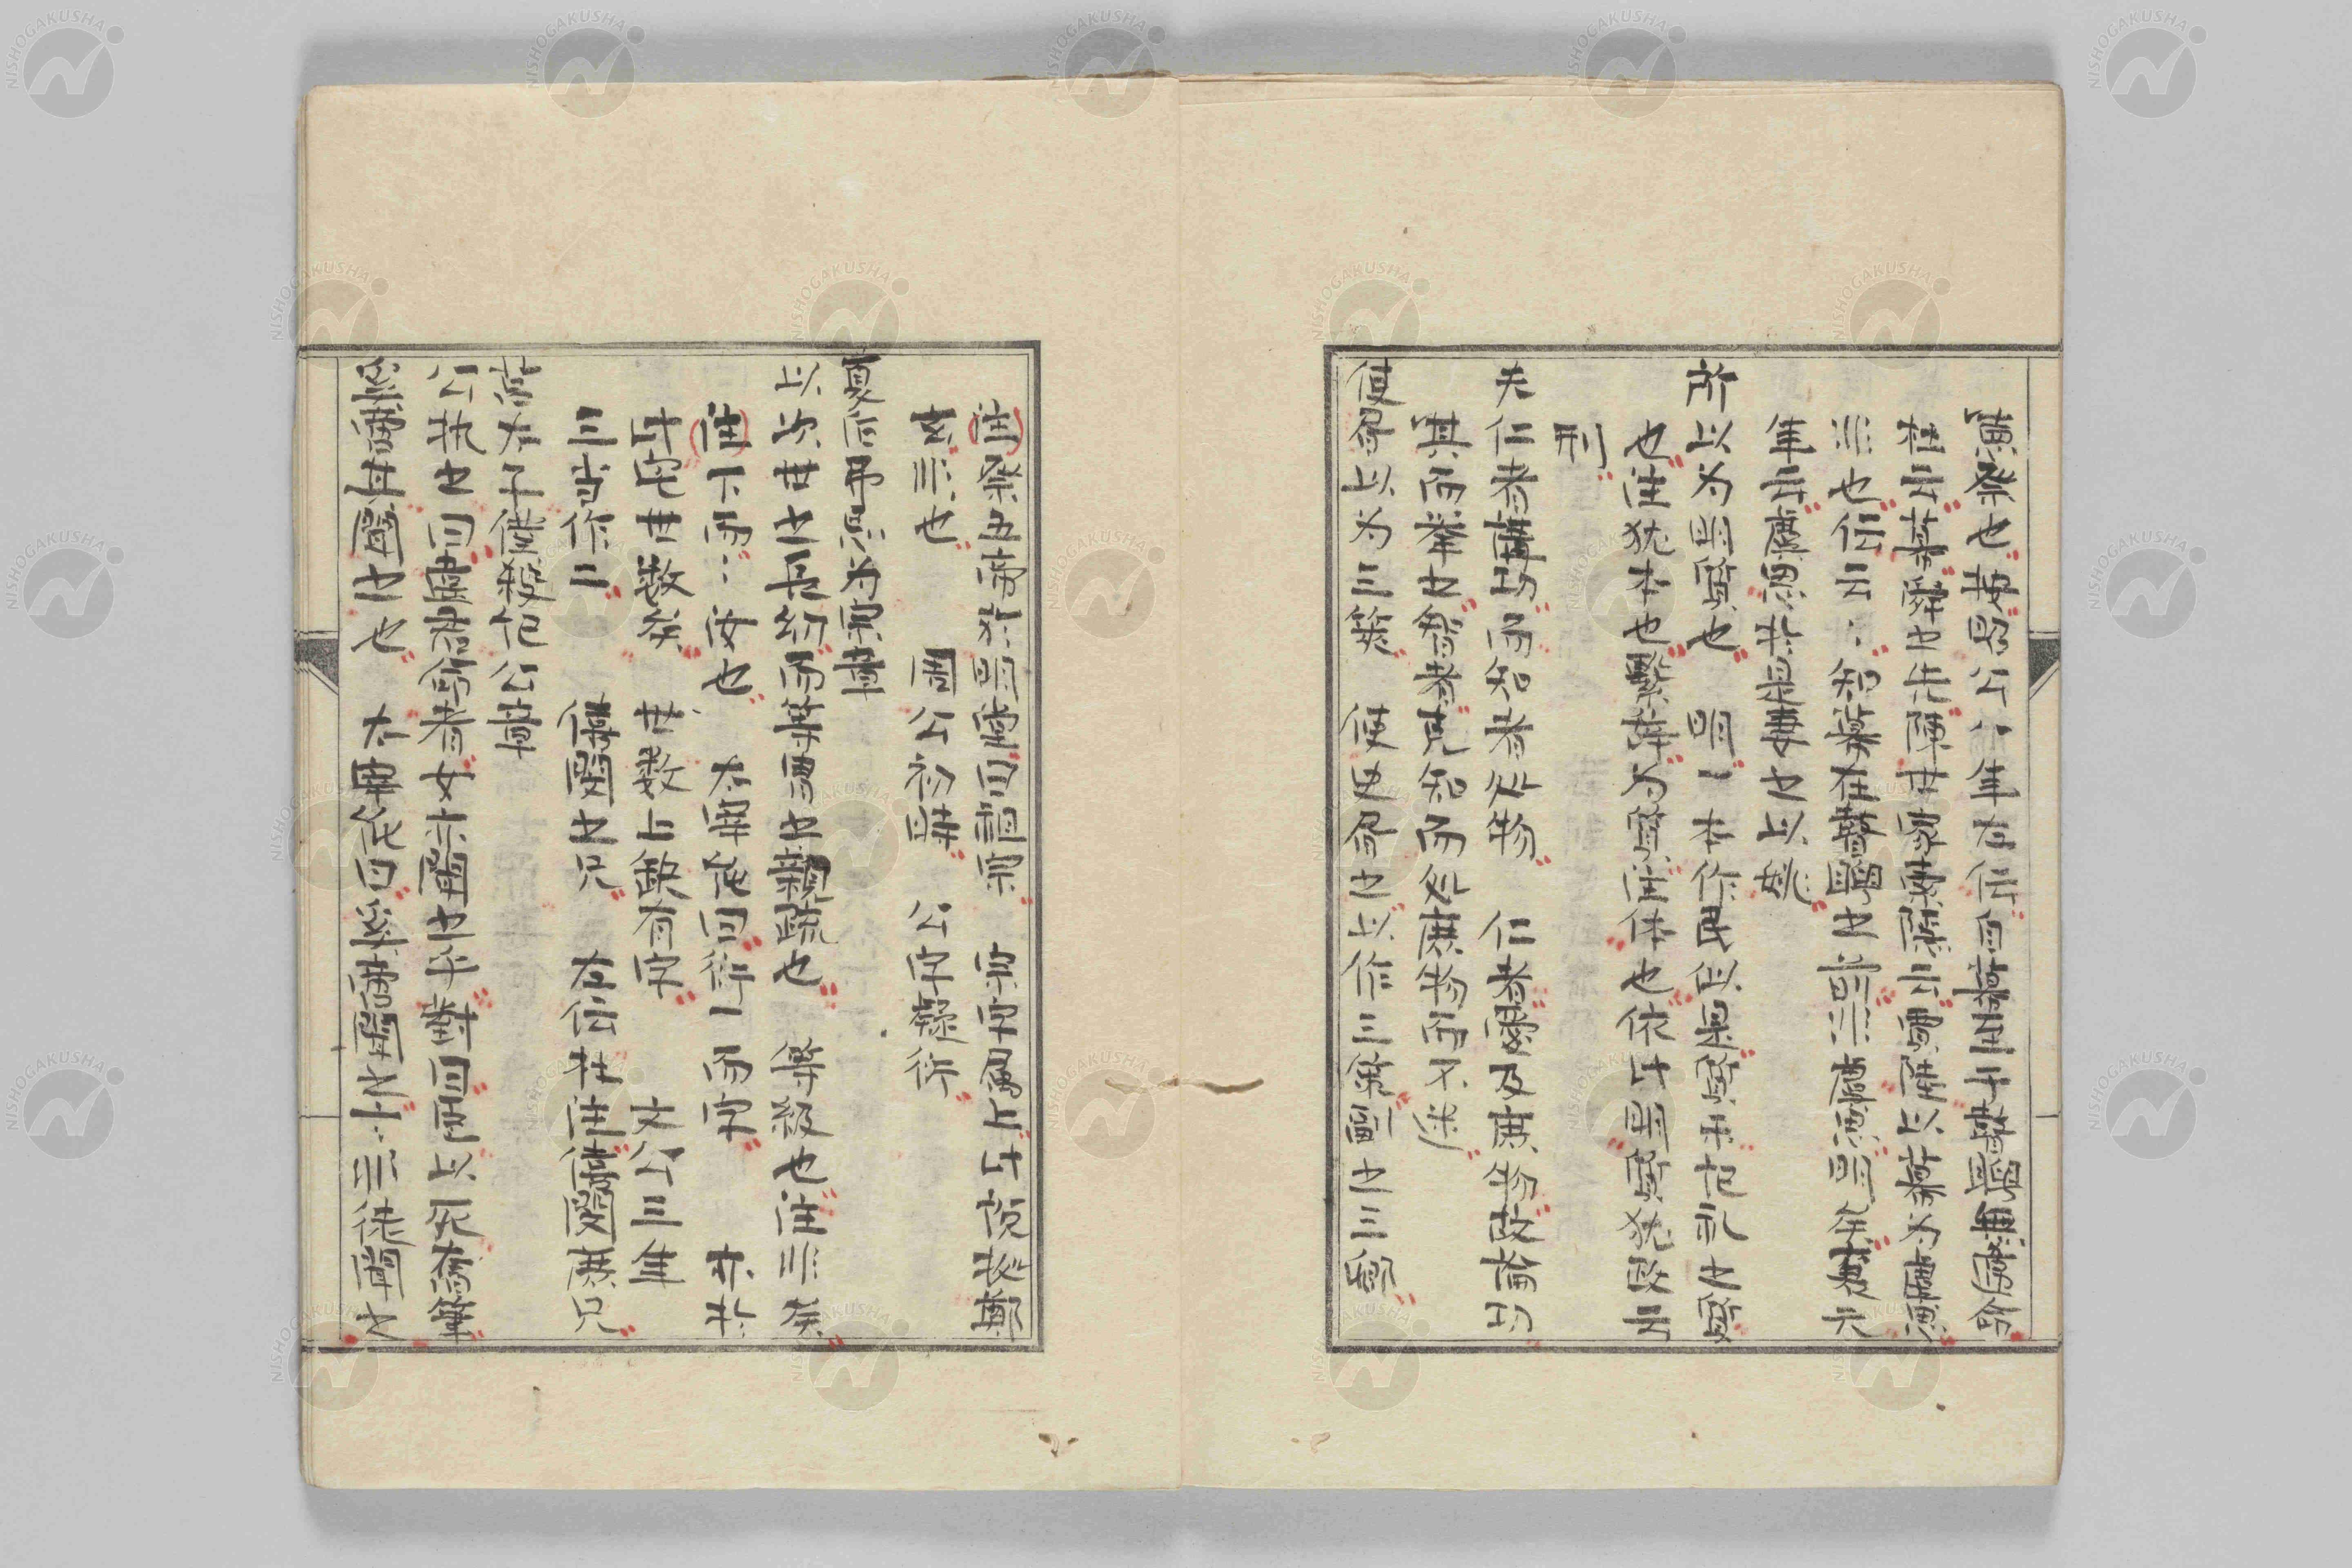 黄発也按昭公八年左伝自幕至于瞽瞍無違命
杜云幕舜之先陳世家索隠云賈逵以幕為虞思
非也伝云〻知幕在瞽瞍之前非虞思明矣哀元
年云虞思於是妻之以姚
所以为明質也　明一本作民似是質采祀礼之質
也注犹本也繋辞为質注体也依此明質犹政云
刑
夫仁者講功而知者処物　仁者愛及庶物故論功
其而挙之智者克知而処庶物而不迷
使君以为三策　使史君之以作三策国之三卿
注祭五帝於明堂曰祖宗　宗字属上此説拠鄭
玄非也　周公初時　公字疑衍
夏父弗忌为宗章
以次世之長幼而等冑之親疏也　等級也注非矣
注下而〻次也　太宰氏曰衍一而字　亦於
此宅世数矣　世数上欽有字　文公三年
三当作二　僖閔之兄　左伝杜注僖閔庶兄
莒太子僕殺紀公章
公執之曰違君命者女亦聞之乎対曰臣以死奮筆
奚啻其聞之也　太宰氏曰奚啻聞之十〻非徒聞之